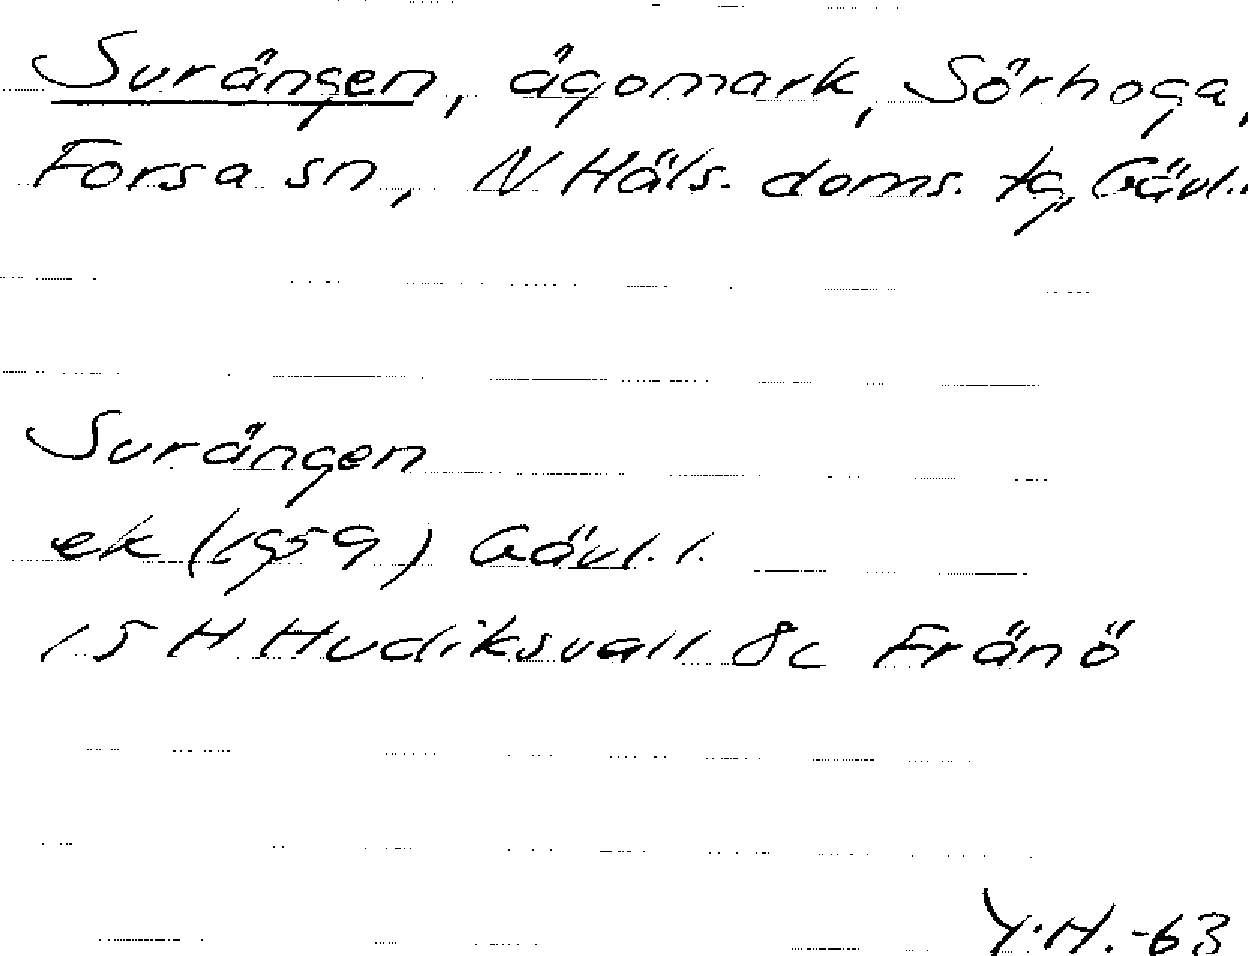 Surängen, ägomark, Sörhoga,
Forsa sn, N Häls. doms. tg, Gävl.
Surängen
ek (1959) Gävl. l.
15 H Hudiksvall 8c Fränö
Y.H.-63